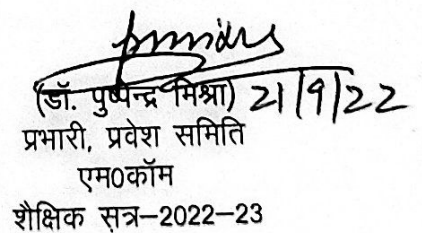 (डॉ. पुष्पेन्द्र मिश्रा) 21/9/22
प्रभारी, प्रवेश समिति
एम0कॉम
शैक्षिक सत्र-2022-23